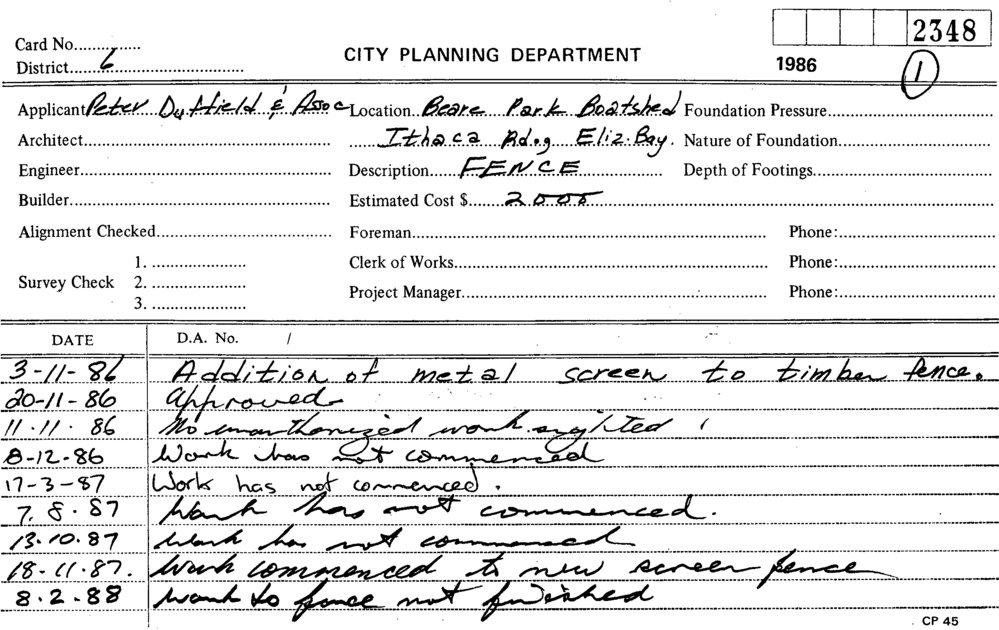 2348
Card No.
District 6
CITY PLANNING DEPARTMENT
1986
1
Applicant Peter Duffield & Assoc Location Beare Park Boatshed Foundation Pressure
Architect Ithaca Rdg Eliz. Bay. Nature of Foundation
Engineer Description FENCE Depth of Footings
Builder Estimated Cost $ 2000
Alignment Checked Foreman Phone:
Survey Check
1.
2.
3.
Clerk of Works Phone:
Project Manager Phone:
DATE D.A. No. /
3-11-86 Addition of metal screen to timber fence.
20-11-86 Approved
11.11.86 No unauthorized work sighted
8-12-86 Work has not commenced
17-3-87 Work has not commenced.
7.8.87 Work has not commenced.
13.10.87 Work has not commenced
18.11.87. Work commenced to new screen fence
8.2.88 Work to fence not finished
CP 45